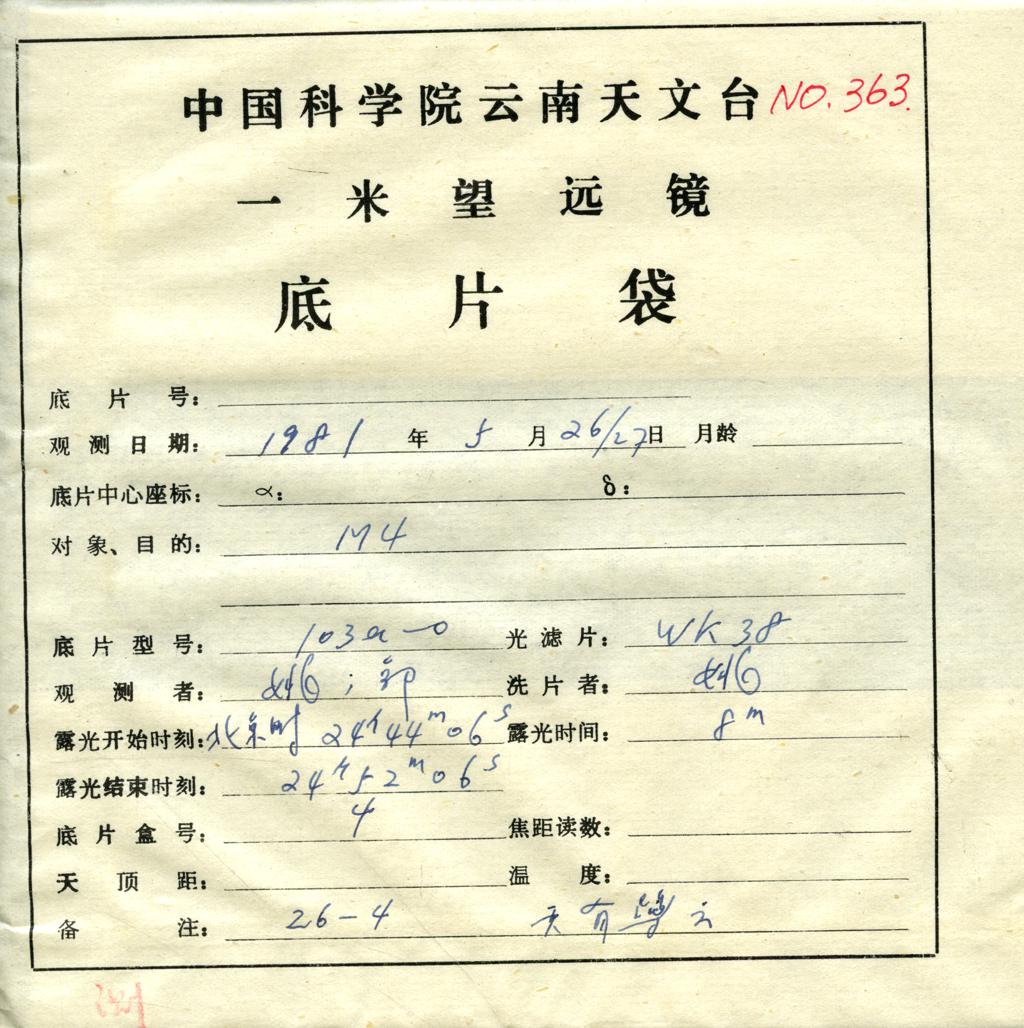 中国科学院云南天文台 NO. 363.
一米望远镜
底片袋
底片号：
观测日期： 1981 年 5 月 26/27 日 月龄
底片中心座标： α： δ：
对象、目的： M4
底片型号： 103a-o 光滤片： WK38
观测者： 洗片者：
露光开始时刻： 北京时 24h44m06s 露光时间： 8m
露光结束时刻： 24h52m06s
底片盒号： 4 焦距读数：
天顶距： 温度：
备注： 26-4 天有 云